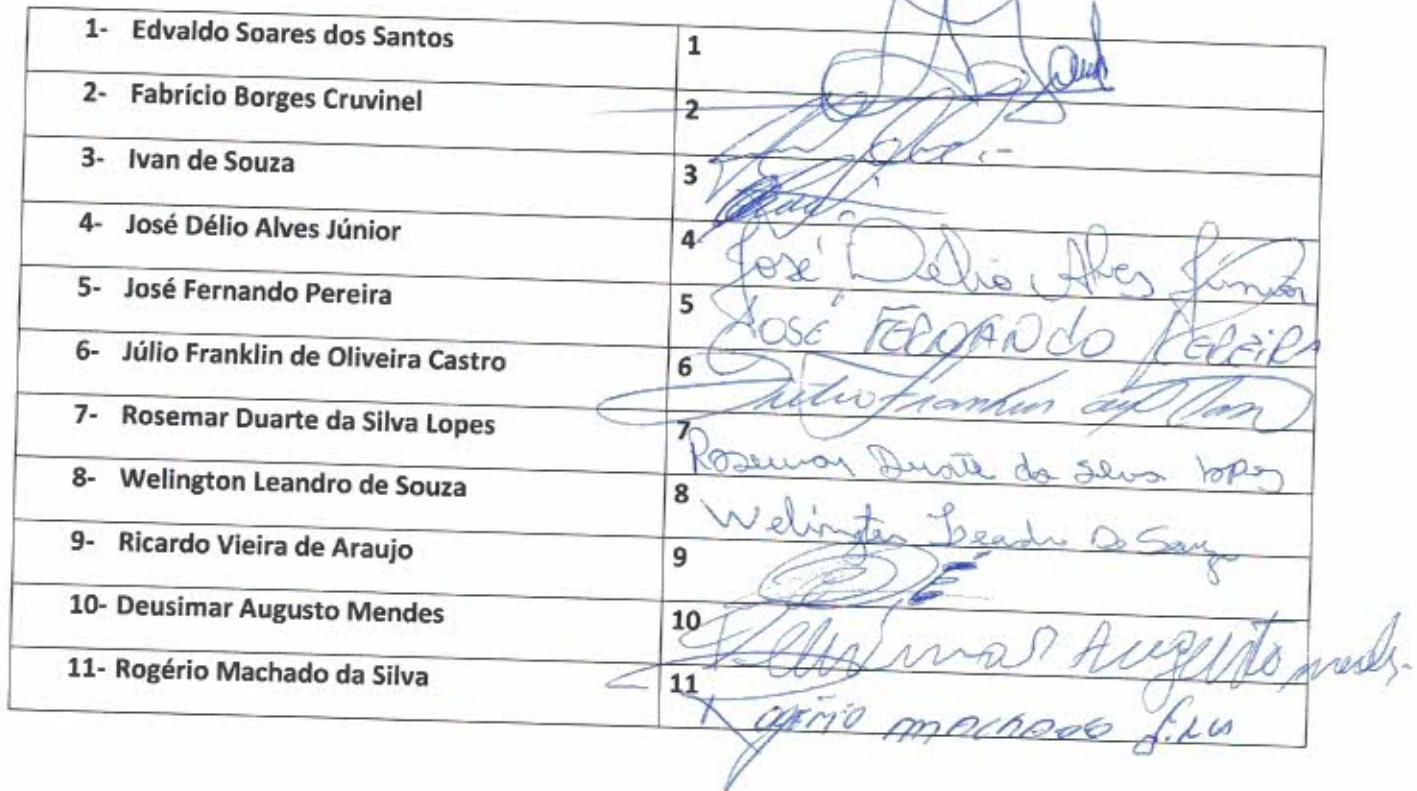 1- Edvaldo Soares dos Santos 1
2- Fabrício Borges Cruvinel 2
3- Ivan de Souza 3
4- José Délio Alves Júnior 4 José Délio Alves Júnior
5- José Fernando Pereira 5 JOSÉ FERNANDO PEREIRA
6- Júlio Franklin de Oliveira Castro 6 Júlio Franklin
7- Rosemar Duarte da Silva Lopes 7 Rosemar Duarte da Silva Lopes
8- Welington Leandro de Souza 8 Welington Leandro De Souza
9- Ricardo Vieira de Araujo 9
10- Deusimar Augusto Mendes 10 Deusimar Augusto Mendes
11- Rogério Machado da Silva 11 Rogério Machado